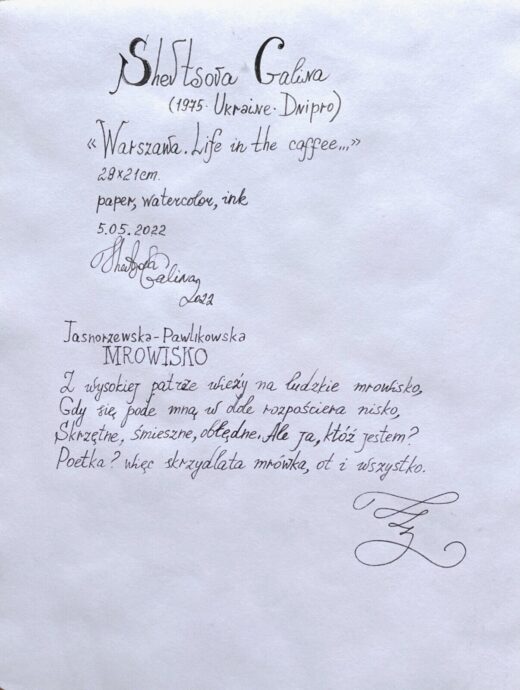 Shevtsova Galina
(1975. Ukraine. Dnipro)
«Warszawa. Life in the coffee...»
29x21cm.
paper, watercolor, ink
5.05.2022
Shevtsova
Galina
2022
Jasnorzewska-Pawlikowska
MROWISKO
Z wysokiej patrzę wieży na ludzkie mrowisko,
Gdy się pode mną w dole rozpościera nisko,
Skrzętne, śmieszne, obłędne. Ale ja, któż jestem?
Poetka? więc skrzydlata mrówka, ot i wszystko.